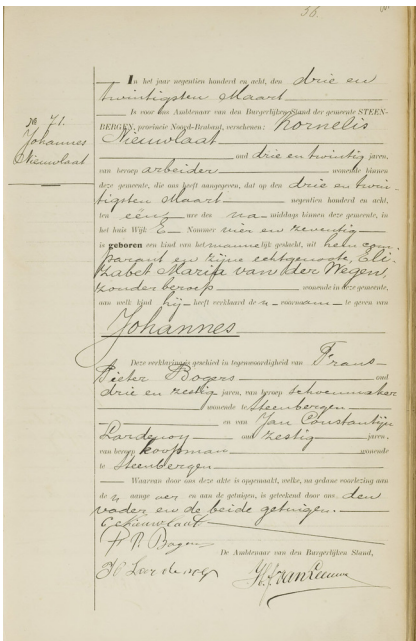 36.
No 71.
Johannes
Nieuwlaat
In het jaar negentien honderd en acht, den drie en
twintigsten Maart
Is voor ons Ambtenaar van den Burgerlijken Stand der gemeente STEEN-
BERGEN, provincie Noord-Brabant, verschenen: Kornelis
Nieuwlaat
oud drie en twintig jaren,
van beroep arbeider wonende binnen
deze gemeente, die ons heeft aangegeven, dat op den drie en twin-
tigsten Maart negentien honderd en acht,
ten één ure des na- middags binnen deze gemeente, in
het huis Wijk E Nummer vier en zeventig
is geboren een kind van het mannelijk geslacht, uit hem com-
parant en zijne echtgenoote, Eli-
zabet Maria van der Wegen,
zonder beroep wonende in deze gemeente,
aan welk kind hij heeft verklaard den voornaam te geven van
Johannes
Deze verklaring is geschied in tegenwoordigheid van Frans
Pieter Bogers oud
drie en zestig jaren, van beroep schoenmaker
wonende te Steenbergen
en van Jan Constantijn
Lardenoy oud zestig jaren,
van beroep koopman wonende
te Steenbergen
Waarvan door ons deze akte is opgemaakt, welke, na gedane voorlezing aan
den aangever en aan de getuigen, is geteekend door ons, den
vader en de beide getuigen.
C Nieuwlaat
Bogers
De Ambtenaar van den Burgerlijken Stand,
Lardenoy
van Leeuw